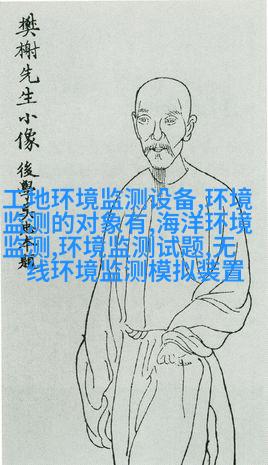 樊榭先生小像
後學吳本題
工地环境监测设备,环境
监测的对象有,海洋环境
监测,环境监测试题,无
线环境监测模拟装置